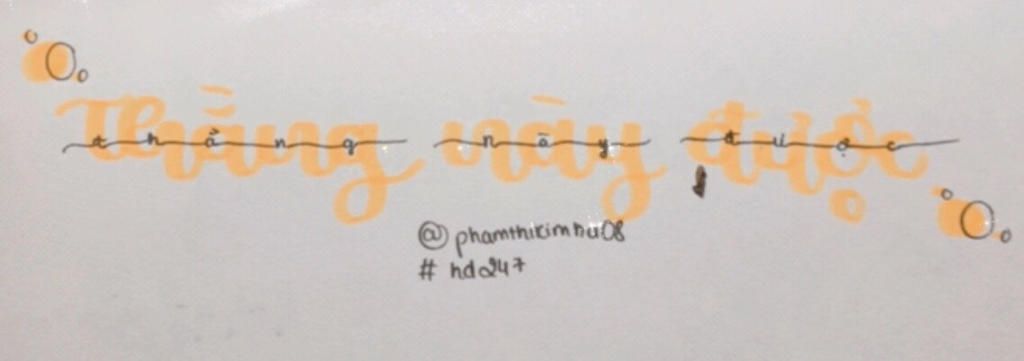 thằng này được
thằng này được
@phamthikimhu08
#hda247